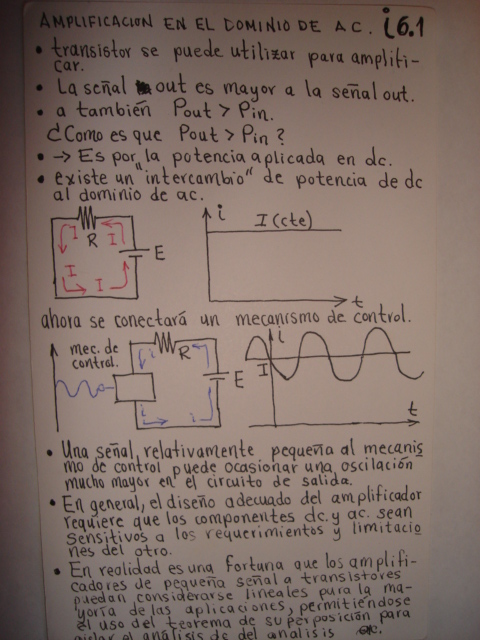 AMPLIFICACION EN EL DOMINIO DE AC. i6.1
• transistor se puede utilizar para amplifi-
car.
• La señal out es mayor a la señal out.
• a también Pout > Pin.
¿Como es que Pout > Pin?
• → Es por la potencia aplicada en dc.
• existe un "intercambio" de potencia de dc
al dominio de ac.
I R I E
I I
i I (cte)
t
ahora se conectará un mecanismo de control.
mec. de
control.
i R E
i i
i
I
t
• Una señal, relativamente pequeña al mecanis
mo de control puede ocasionar una oscilación
mucho mayor en el circuito de salida.
• En general, el diseño adecuado del amplificador
requiere que los componentes dc. y ac. sean
sensitivos a los requerimientos y limitacio
nes del otro.
• En realidad es una fortuna que los amplifi-
cadores de pequeña señal a transistores
puedan considerarse lineales para la ma-
yoría de las aplicaciones, permitiendose
el uso del teorema de superposición para
el análisis de dc del analisis ac.